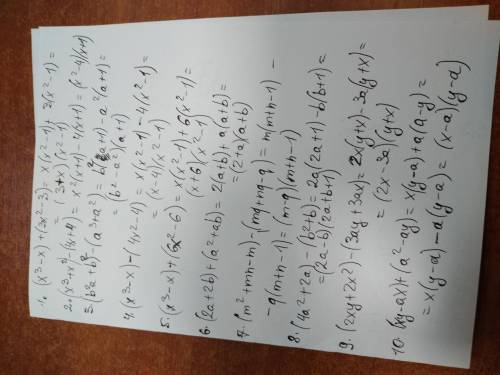 1. (x³-x)+(3x²-3)=x(x²-1)+3(x²-1)=
=(3+x)(x²-1)
2. (x³+x²)-(4x+4)=x²(x+1)-4(x+1)=(x²-4)(x+1)
3. (b²a+b²)-(a³+a²)=b²(a+1)-a²(a+1)=
=(b²-a²)(a+1)
4. (x³-x)-(4x²-4)=x(x²-1)-4(x²-1)=
=(x-4)(x²-1)
5. (x³-x)+(6x²-6)=x(x²-1)+6(x²-1)=
(x+6)(x²-1)
6. (2a+2b)+(a²+ab)=2(a+b)+a(a+b)=
=(2+a)(a+b)
7. (m²+mn-m)-(mq+nq-q)=m(m+n-1)-
-q(m+n-1)=(m-q)(m+n-1)
8. (4a²+2a)-(b²+b)=2a(2a+1)-b(b+1)=
=(2a-b)(2a+b+1)
9. (2xy+2x²)-(3ay+3ax)=2x(y+x)-3a(y+x)=
=(2x-3a)(y+x)
10. (xy-ax)+(a²-ay)=x(y-a)+a(a-y)=
=x(y-a)-a(y-a)=(x-a)(y-a)